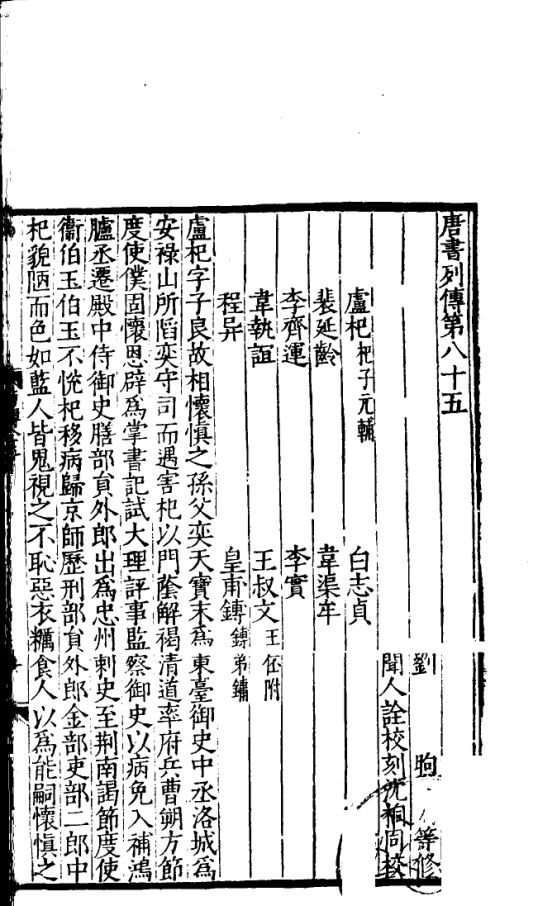 唐書列傳第八十五
劉 昫 等修
聞人詮校刻沈桐同校
盧杞 杞子元輔 白志貞
裴延齡 韋渠牟
李齊運 李實
韋執誼 王叔文 王伾附
程异 皇甫鎛 鎛弟鏞
盧杞字子良故相懷愼之孫父奕天寶末爲東臺御史中丞洛城爲
安祿山所陷奕守司而遇害杞以門蔭解褐清道率府兵曹朔方節
度使僕固懷恩辟爲掌書記試大理評事監察御史以病免入補鴻
臚丞遷殿中侍御史膳部負外郎出爲忠州刺史至荆南謁節度使
衞伯玉伯玉不恱杞移病歸京師歷刑部負外郎金部吏部二郎中
杞貌陋而色如藍人皆鬼視之不恥惡衣糲食人以爲能嗣懷愼之